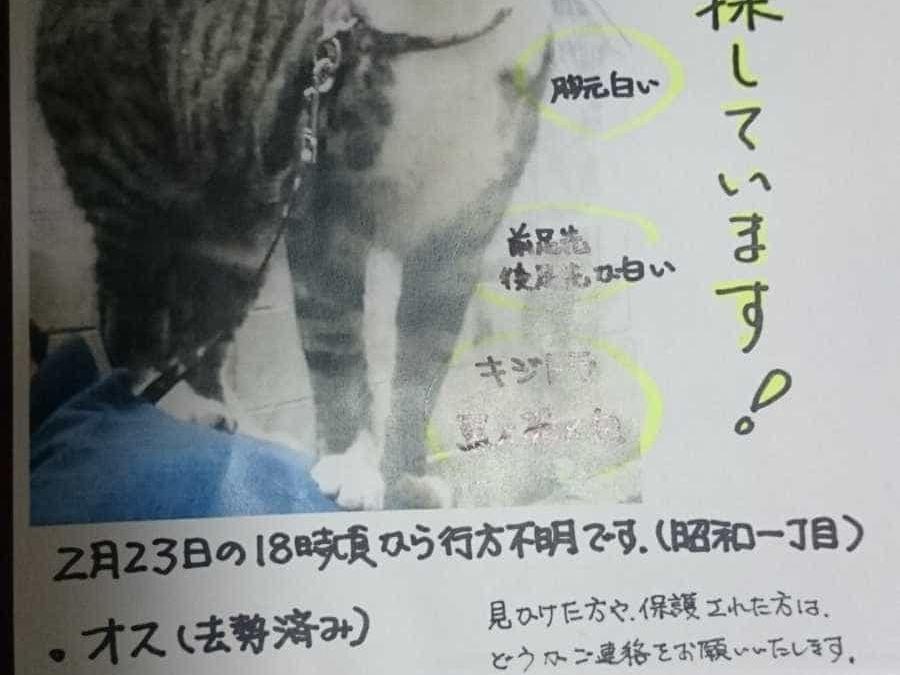 探しています!
胸元白い
前足先
後足先が白い
キジトラ
2月23日の18時頃から行方不明です.(昭和一丁目)
・オス(去勢済み)
見かけた方や、保護された方は、
どうかご連絡をお願いいたします。